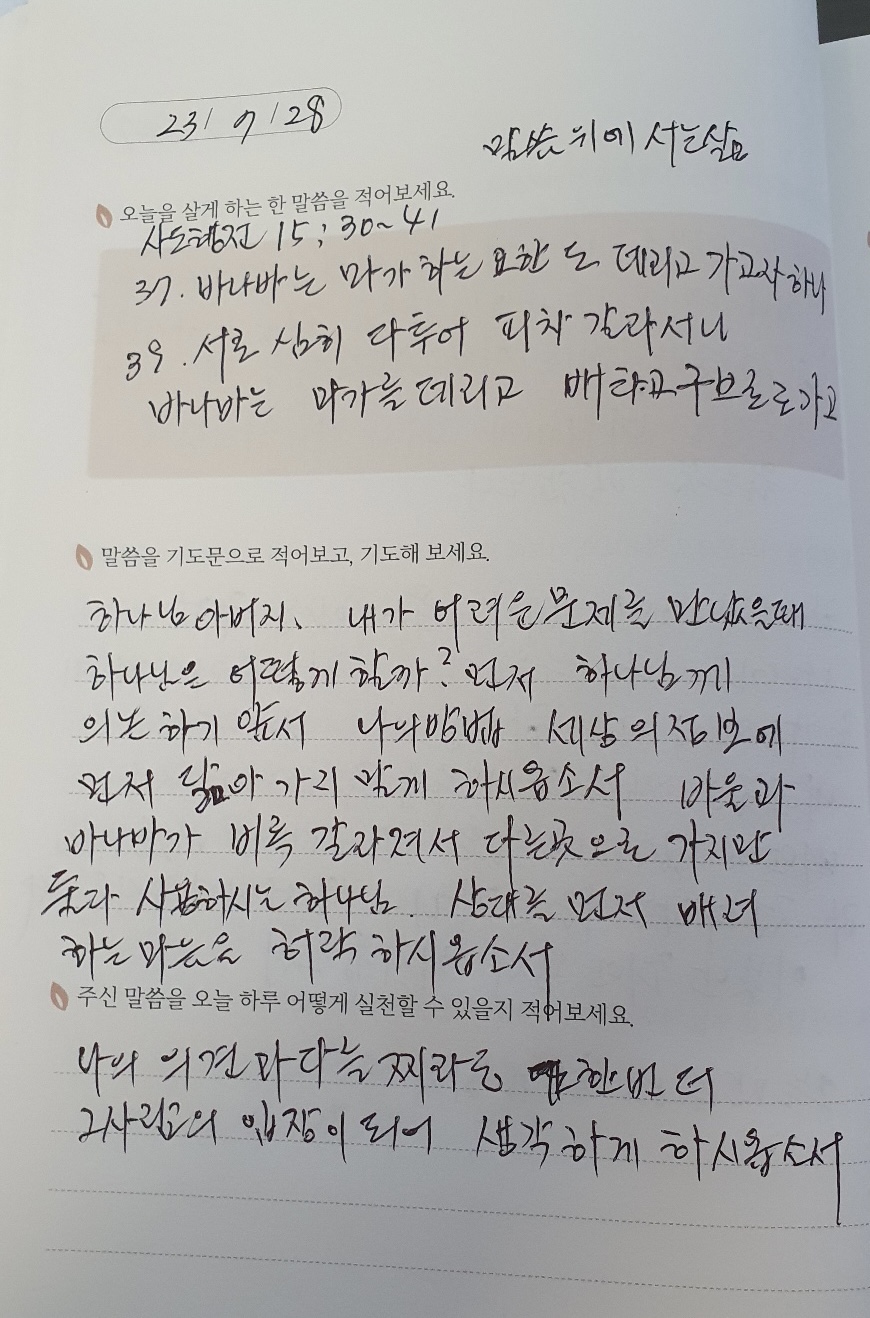 23/ 9/28
말씀 위에 서는 삶
오늘을 살게 하는 한 말씀을 적어보세요.
사도행전 15; 30~41
37. 바나바는 마가 하는 요한 도 데리고 가고자 하나
39. 서로 심히 다투어 피차 갈라서니
바나바는 마가를 데리고 배타고 구브로로 가고
말씀을 기도문으로 적어보고, 기도해 보세요.
하나님 아버지, 내가 어려운 문제를 만났을때
하나님은 어떻게 할까? 먼저 하나님께
의논하기 앞서 나의 방법 세상의 정보에
먼저 가지 말게 하시옵소서 바울과
바나바가 비록 갈라져서 다른곳으로 가지만
둘다 사용하시는 하나님. 상대를 먼저 배려
하는 마음을 허락 하시옵소서
주신 말씀을 오늘 하루 어떻게 실천할 수 있을지 적어보세요.
나의 의견과 다를 찌라도 한번 더
그사람의 입장이 되어 생각하게 하시옵소서